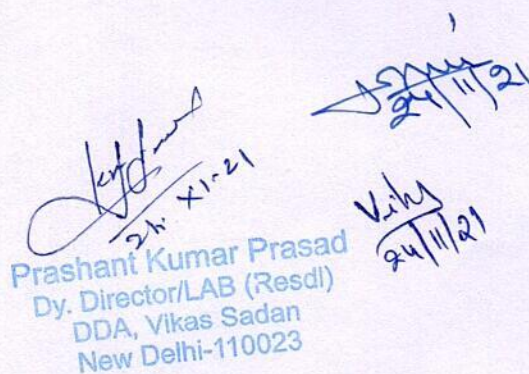 24/11/21
24.XI.21
24/11/21
Prashant Kumar Prasad
Dy. Director/LAB (Resdl)
DDA, Vikas Sadan
New Delhi-110023